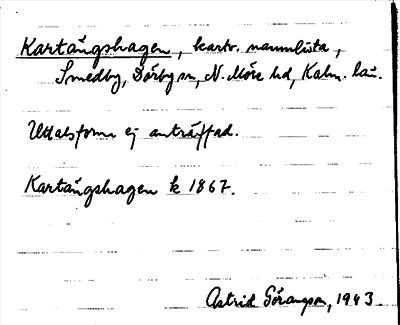 Kartängshagen, kartv. namnlista,
Smedby, Dörby sn, N. Möre hd, Kalm. län.
Uttalsform ej anträffad.
Kartängshagen k 1867.
Astrid Göransson, 1943